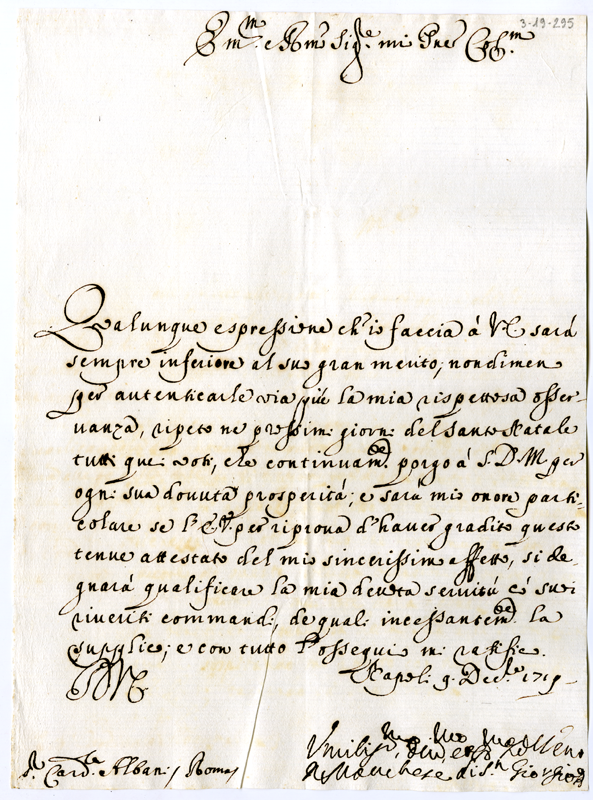 3-19-295
Em.mo e R.mo Sig.e mio P.ne Col.mo
Qualunque espressione ch'io faccia à VE sarà
sempre inferiore al suo gran merito; nondimeno
per autenticarle via più la mia rispettosa osser-
vanza, ripeto ne prossimi giorni del Santo Natale
tutti quei voti, che continuam.te porgo à S. D. M. per
ogni sua dovuta prosperità; e sarà mio onore parti-
colare se l'E.V. per riprova d'haver gradito questo
tenue attestato del mio sincerissimo affetto, si de-
gnarà qualificare la mia devota servitù co' suoi
riveriti commandi, de quali incessantem.te la
supplico; e con tutto l'ossequio mi ratifico.
Napoli 9. Dec.re 1719
S.r Card.le Albani / Roma /
Il Marchese di S. Giorgio